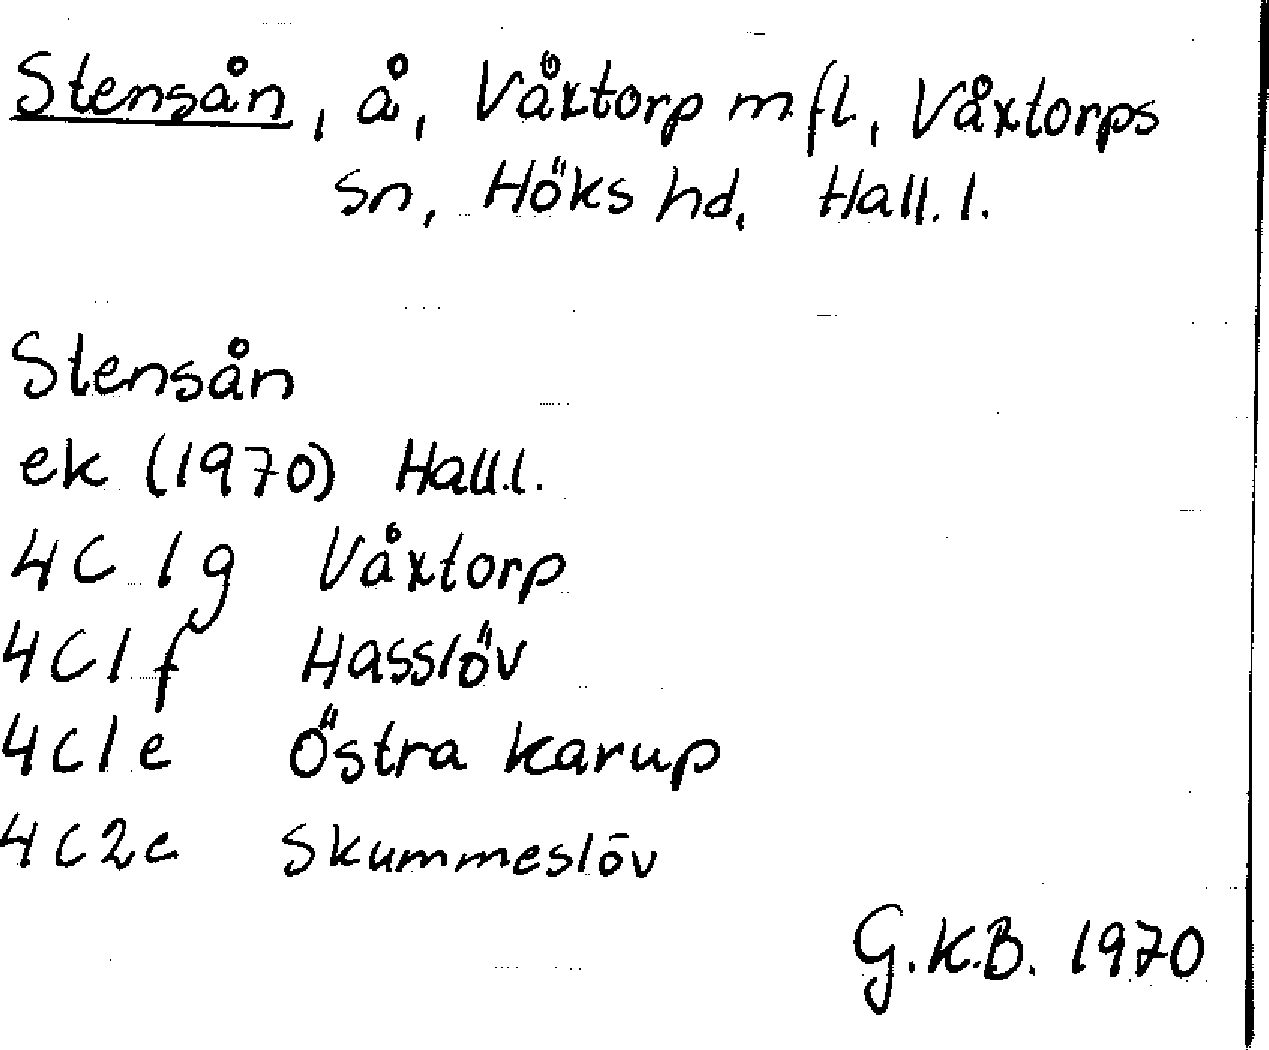 Stensån, å, Våxtorp m fl, Våxtorps
sn, Höks hd, Hall. l.
Stensån
ek (1970) Hall.l.
4C 1g Våxtorp
4C1f Hasslöv
4C1e Östra Karup
4C2e Skummeslöv
G.K.B. 1970